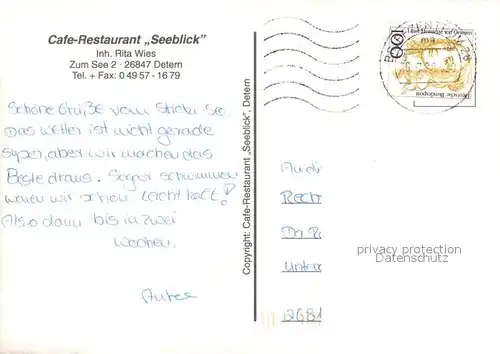 Cafe-Restaurant „Seeblick"
Inh. Rita Wies
Zum See 2 · 26847 Detern
Tel. + Fax: 0 49 57 - 16 79
Schöne Grüße vom Stickh. See.
Das Wetter ist nicht gerade
super, aber wir machen das
Beste draus. Sogar schwimmen
waren wir schon leicht kalt!
Also dann bis in zwei
Wochen.
Copyright: Cafe-Restaurant „Seeblick", Detern
100
Deutsche Bundespost
Rech
Da
Unter
privacy protection
Datenschutz